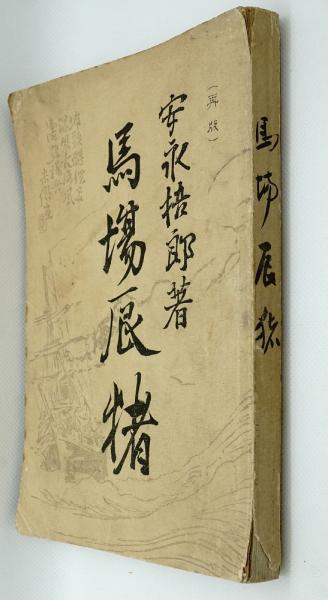 (再版)
安永梧郎著
馬場辰猪
馬場辰猪